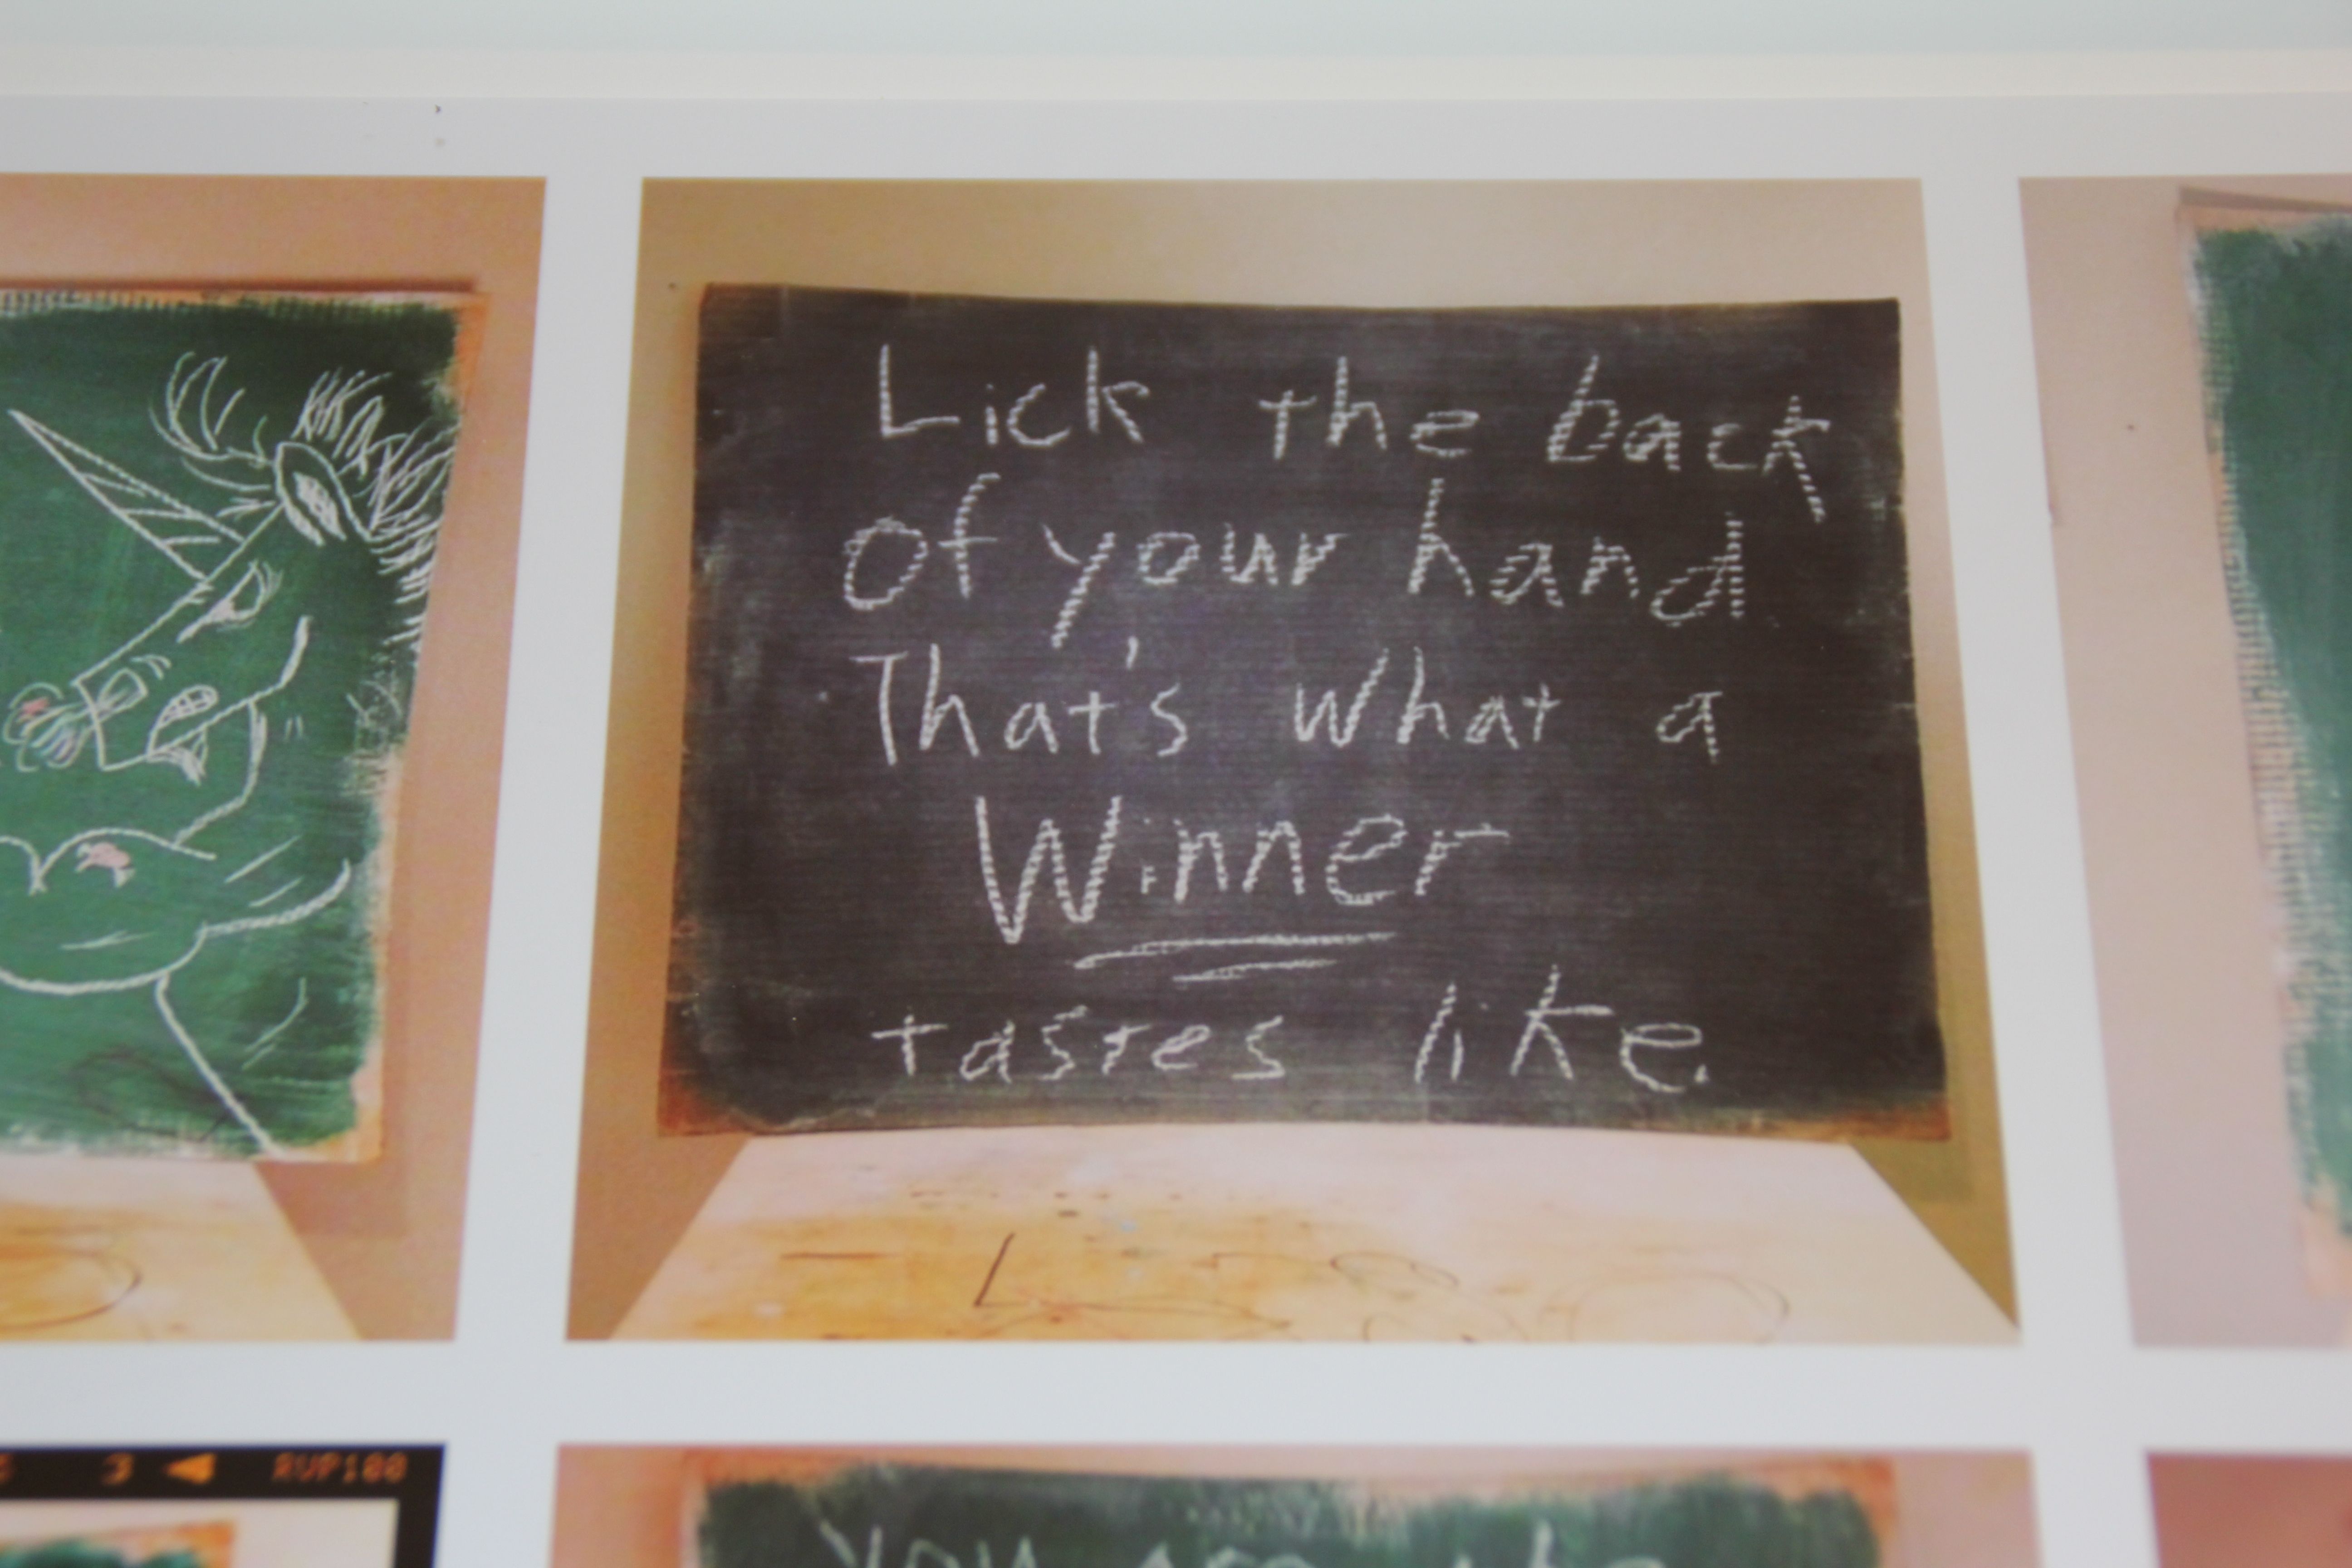 Lick the back
of your hand
That's what a
Winner
tastes like.
3 RVP100
You are